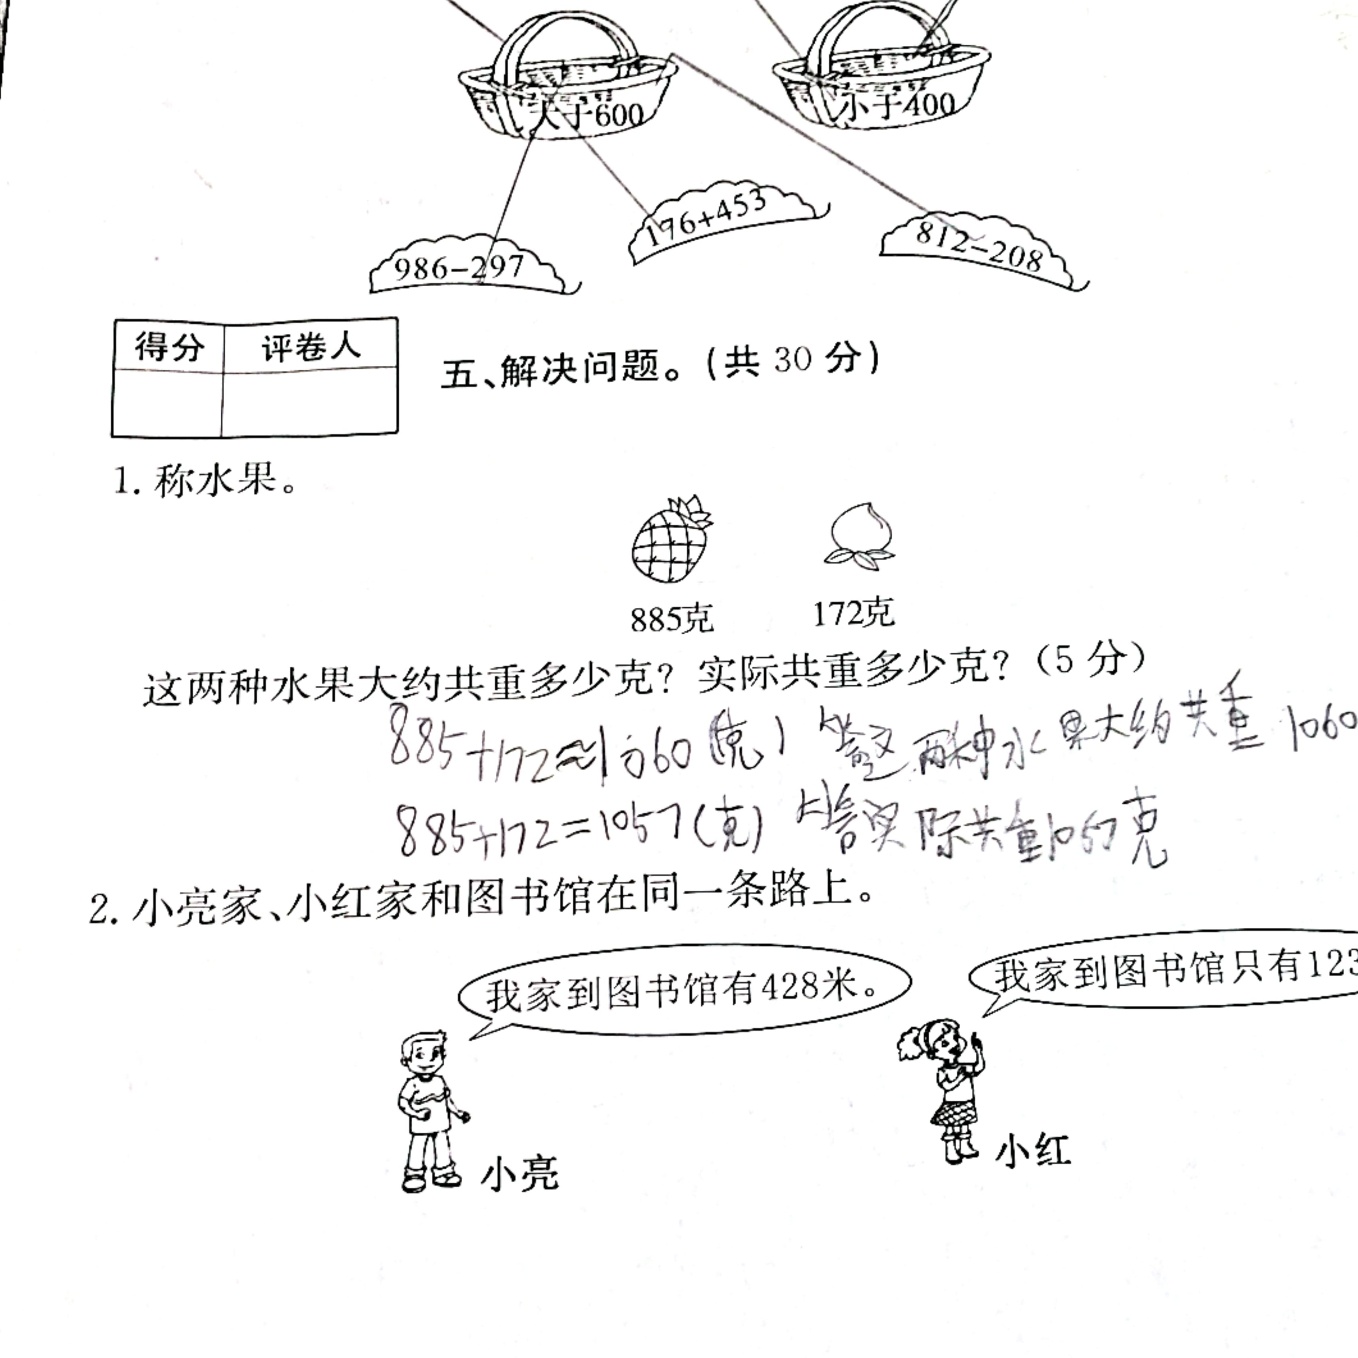 大于600
小于400
176+453
812-208
986-297
得分 评卷人
五、解决问题。(共 30 分)
1. 称水果。
885克 172克
这两种水果大约共重多少克？实际共重多少克？(5 分)
885+172≈1060(克) 答这两种水果大约共重1060
885+172=1057(克) 答实际共重1057克
2. 小亮家、小红家和图书馆在同一条路上。
我家到图书馆有428米。
我家到图书馆只有123
小亮
小红